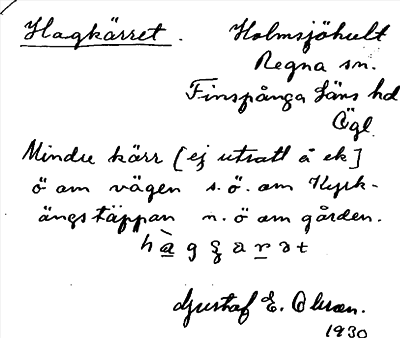 Hagkärret. Holmsjöhult
Regna sn.
Finspånga läns hd
Ögl.
Mindre kärr [ej utsatt å ek]
ö om vägen s.ö. om Kyrk-
ängstäppan n.ö om gården.
Gustaf E. Olsson.
1930